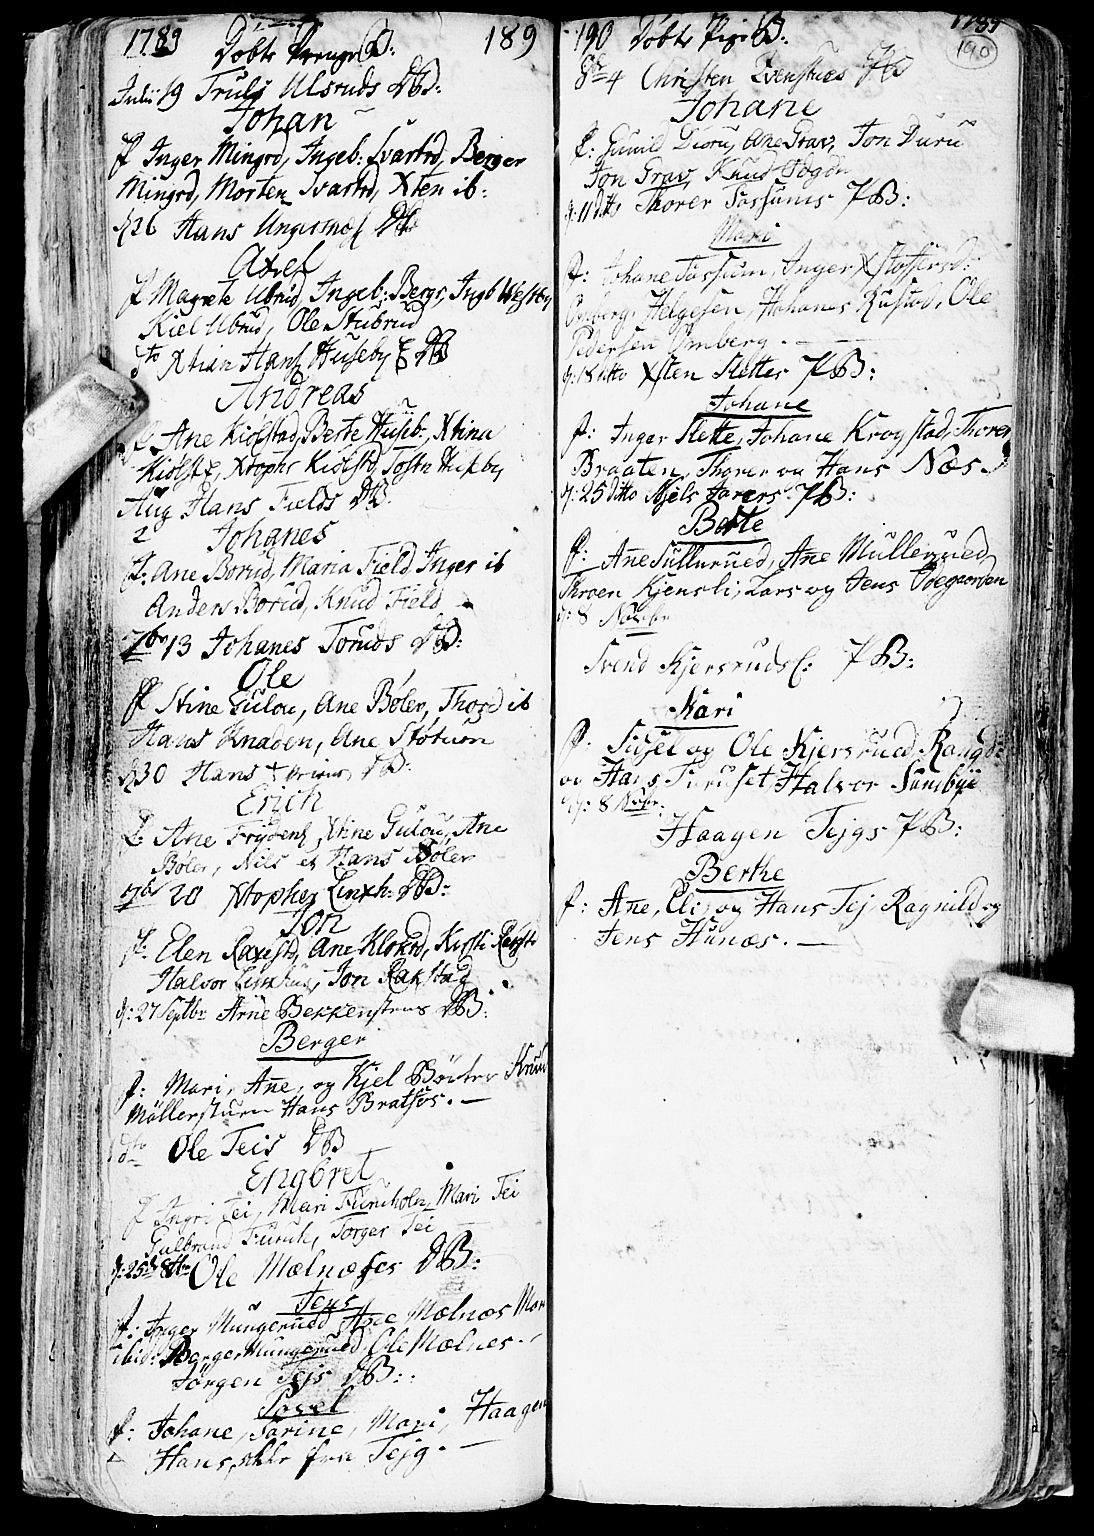 1789 Døbte Drenge B: 189
Julii 19 Truls Ulsruds DB:
Johan
f Inger Mingrd, Ingeb: Svartrd, Berger
Mingrd, Morten Svartrd, Xten ib:
26 Hans DB
Axel
f Magrete Ubrud, Ingeb: Bergs, Ingb Westby
Kiel Ubrud, Ole Stubrud
Xtian Hans Huseby DB
Andreas
f Ane Kiølstad, Berte Huseb:, Xtina
Kiølst, Xtophr Kiølstd, Tostn Huseby
Aug Hans Fields DB.
2 Johanes
f: Ane Borud, Maria Field Inger ib
Anders Borud, Knud Field
7br 13 Johanes Toruds DB:
Ole
f Stine Gulou, Ane Bøler, Thord ib
Hans Knaden, Ane Støtum
30 Hans DB:
Erich
f. Ane Frydenl, Xtine Gulou, Ane
Bøler, Nils et Hans Bøler
7br 20 Xtopher Linxh: DB:
Jon
f: Elen Raxstd, Ane Klokrd, Kirsti Raxstd
Halvor Linxhus, Jon Rakstad
d: 27 Septbr Arne Bekkenstens DB:
Berger
f: Mari, Ane, og Kjel Knud
Møllerstuen Hans Bratfos. —
dto Ole Teis DB
Engbret
f Ingri Tei, Mari Furuholm, Mari Tei
Gulbrand Furuh, Torger Tei
d: 25 8br Ole Mælnæses DB:
Jens
f: Inger Mungerudd Ane Mælnæs Mari
ibid: Berger Mungerued, Ole Mælnes.
Jørgen Tejs DB:
Povel
f: Johane, Karine, Mari, Haagen
Hans, alle fra Tejg. —
190 Døbte Pige B: 1789
190
8br 4 Christen Evenstues PB
Johane
f: Gunild Duru, Ane Grav, Jon Duru
Jon Grav, Knud
d: 11 dito Thorer Tossums PB:
Mari
f: Johane Tossum, Inger Xstoffersd:
Helgesen, Johanes Rustad, Ole
Pedersen Omberg. —
d: 18 dito Xsten Slettes PB:
Johane
f: Inger Slette, Johane Krogstad, Thorer
Braaten, Thorer og Hans Næs.
d: 25 ditto Njels PB:
Berte
f: Ane Sullerued, Ane Mullerued,
Throen Kjensli, Lars og Jens Ødegaarden
d: 8 Novbr.
Svend Kjersruds PB:
Kari
f. Sidsel og Ole Kjersrued, Rangd:
og Hans Furuset, Halvor Sundbye
d: 8 Novbr.
Haagen Tejgs PB:
Berthe
f: Ane, Eli, og Hans Tej, Ragnild og
Jens Hunæs. —